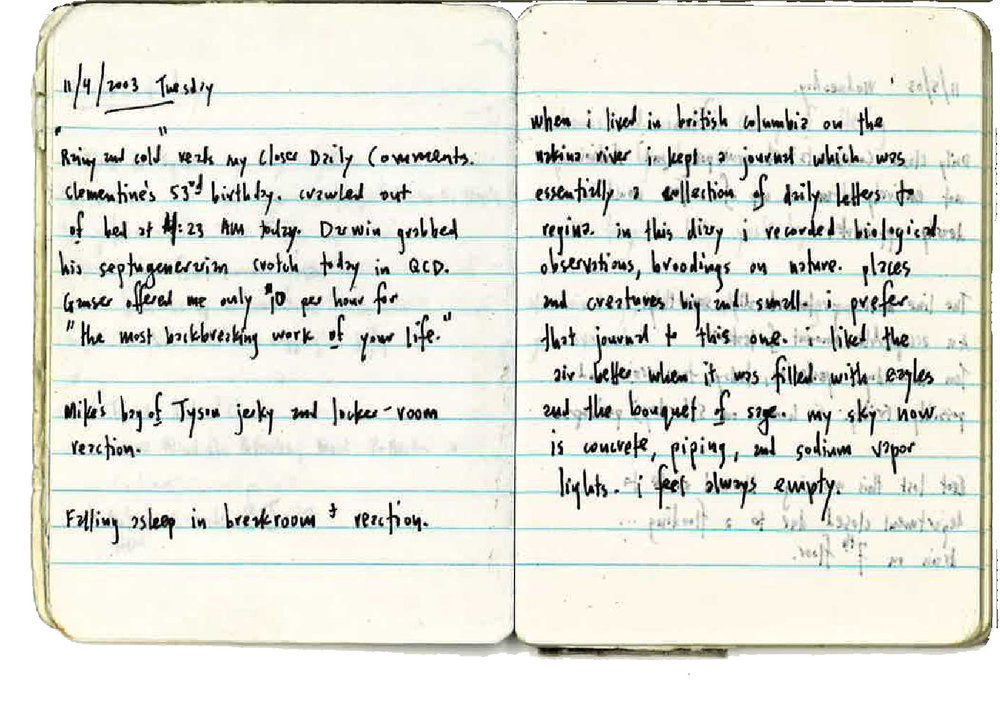 11/4/2003 Tuesday
"Rainy and cold" reads my Closer Daily Comments.
Clementine's 53rd birthday. crawled out
of bed at 4:23 AM today. Darwin grabbed
his septugenerarian crotch today in QCD.
Ganser offered me only $10 per hour for
"the most backbreaking work of your life."
Mike's bag of Tyson jerky and locker-room
reaction.
Falling asleep in breakroom & reaction.
when i lived in british columbia on the
river i kept a journal which was
essentially a collection of daily letters to
regina. in this diary i recorded biological
observations, broodings on nature. places
and creatures big and small. i prefer
that journal to this one. i liked the
air better when it was filled with eagles
and the bouquet of sage. my sky now
is concrete, piping, and sodium vapor
lights. i feel always empty.